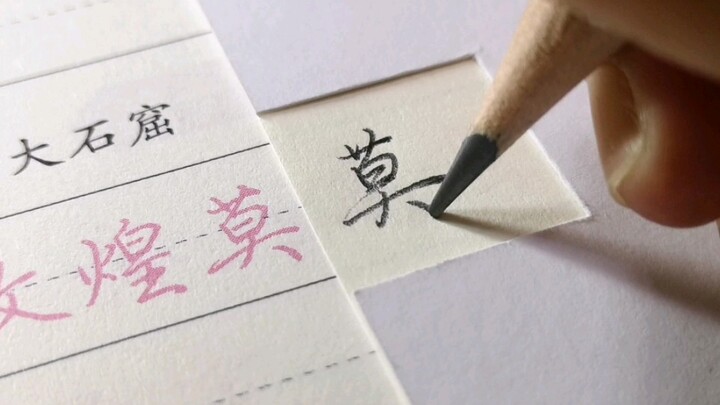 大石窟
敦煌莫
莫